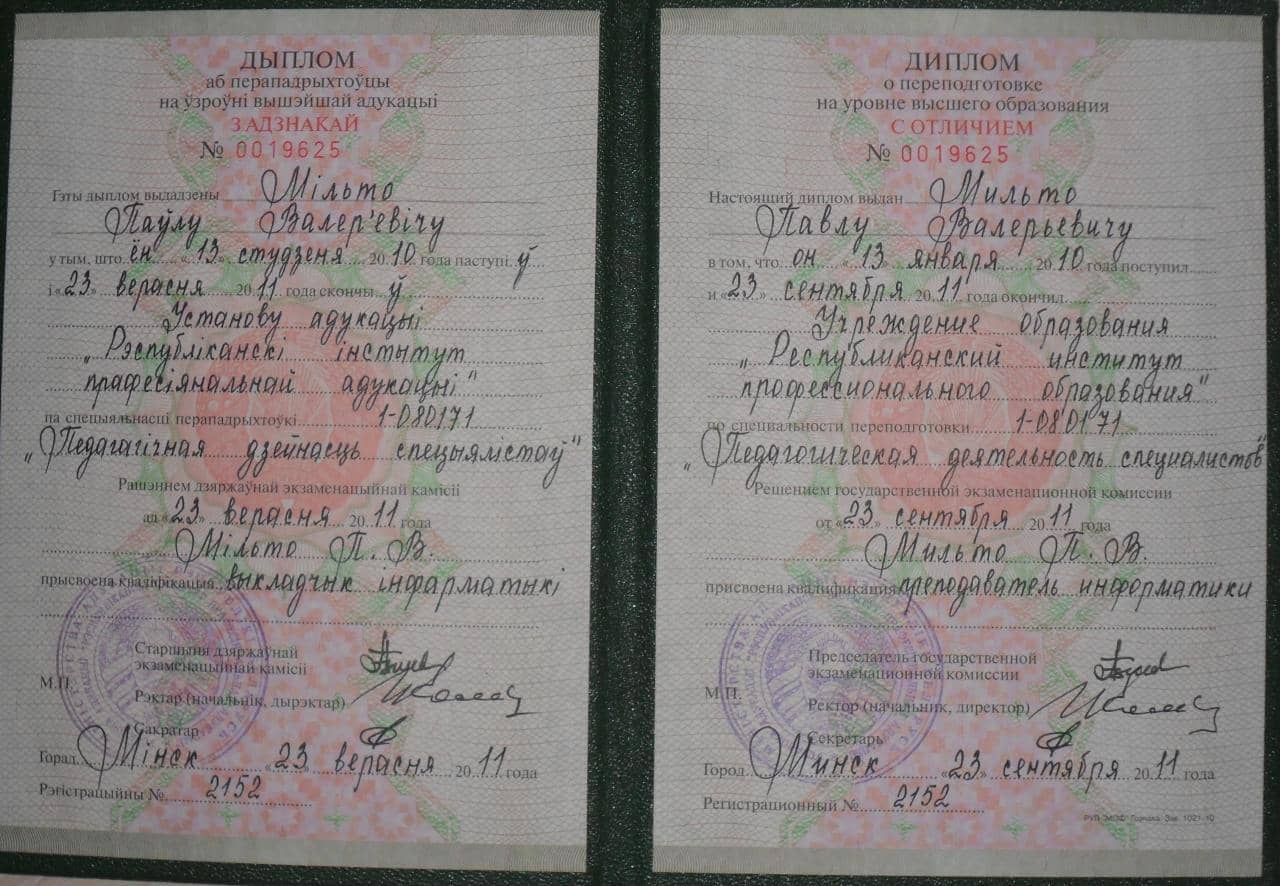 ДЫПЛОМ
аб перападрыхтоўцы
на ўзроўні вышэйшай адукацыі
З АДЗНАКАЙ
№ 0019625
Гэты дыплом выдадзены Мільто
Паўлу Валер'евічу
у тым, што ён «13» студзеня 2010 года паступі ў
і «23» верасня 2011 года скончы ў
Установу адукацыі
„Рэспубліканскі інстытут
прафесіянальнай адукацыі"
па спецыяльнасці перападрыхтоўкі 1-080171
„Педагагічная дзейнасць спецыялістаў"
Рашэннем дзяржаўнай экзаменацыйнай камісіі
ад «23» верасня 2011 года
Мільто П. В.
прысвоена кваліфікацыя выкладчык інфарматыкі
Старшыня дзяржаўнай
экзаменацыйнай камісіі
М.П.
Рэктар (начальнік, дырэктар)
Сакратар
Горад Мінск «23» верасня 2011 года
Рэгістрацыйны № 2152
ДИПЛОМ
о переподготовке
на уровне высшего образования
С ОТЛИЧИЕМ
№ 0019625
Настоящий диплом выдан Мильто
Павлу Валерьевичу
в том, что он «13» января 2010 года поступил
и «23» сентября 2011 года окончил
Учреждение образования
„Республиканский институт
профессионального образования"
по специальности переподготовки 1-080171
„Педагогическая деятельность специалистов"
Решением государственной экзаменационной комиссии
от «23» сентября 2011 года
Мильто П. В.
присвоена квалификация преподаватель информатики
Председатель государственной
экзаменационной комиссии
М.П.
Ректор (начальник, директор)
Секретарь
Город Минск «23» сентября 2011 года
Регистрационный № 2152
Зак. 1021-10